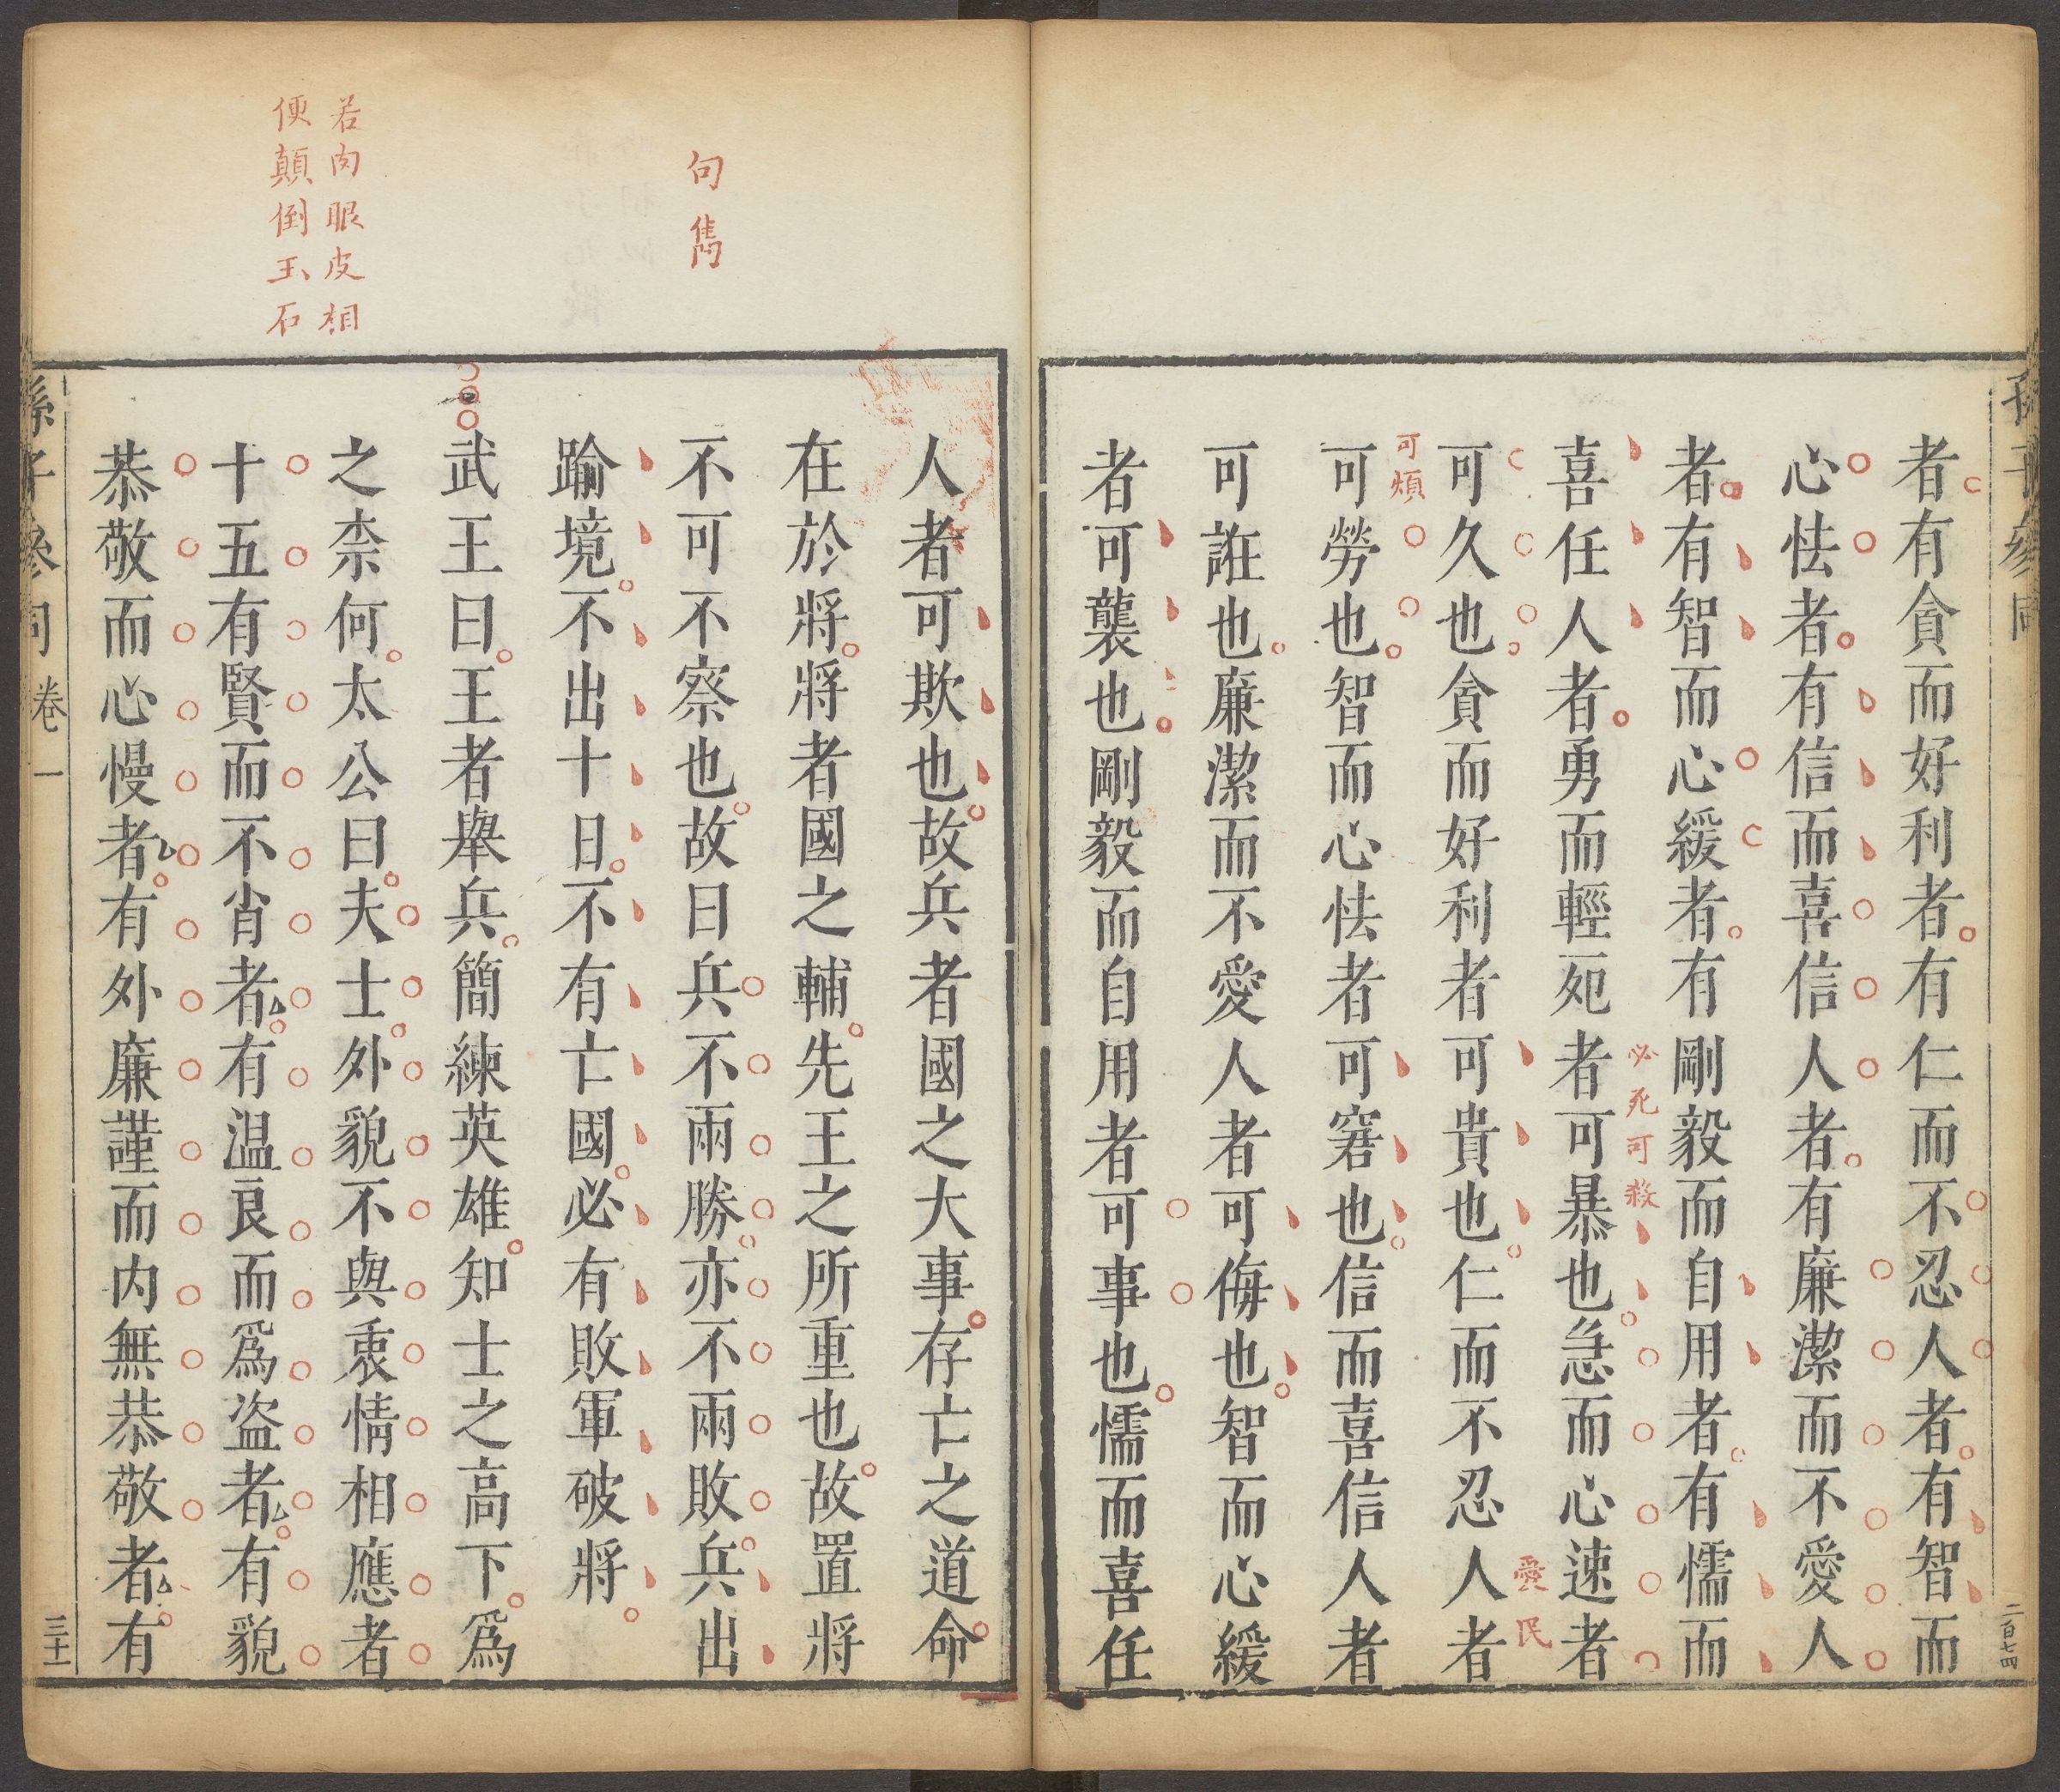 者有貪而好利者有仁而不忍人者有智而
心怯者有信而喜信人者有廉潔而不愛人
者有智而心緩者有剛毅而自用者有懦而
必死可殺
喜任人者勇而輕死者可暴也急而心速者
愛民
可久也貪而好利者可貴也仁而不忍人者
可煩
可勞也智而心怯者可窘也信而喜信人者
可誑也廉潔而不愛人者可侮也智而心緩
者可襲也剛毅而自用者可事也懦而喜任
二百七四
句雋
人者可欺也故兵者國之大事存亡之道命
在於將將者國之輔先王之所重也故置將
不可不察也故曰兵不兩勝亦不兩敗兵出
踰境不出十日不有亡國必有敗軍破將
武王曰王者舉兵簡練英雄知士之高下爲
若肉眼皮相
便顛倒玉石
之柰何太公曰夫士外貌不與衷情相應者
十五有賢而不肖者有温良而爲盜者有貌
恭敬而心慢者有外廉謹而内無恭敬者有
孫子參同 卷一